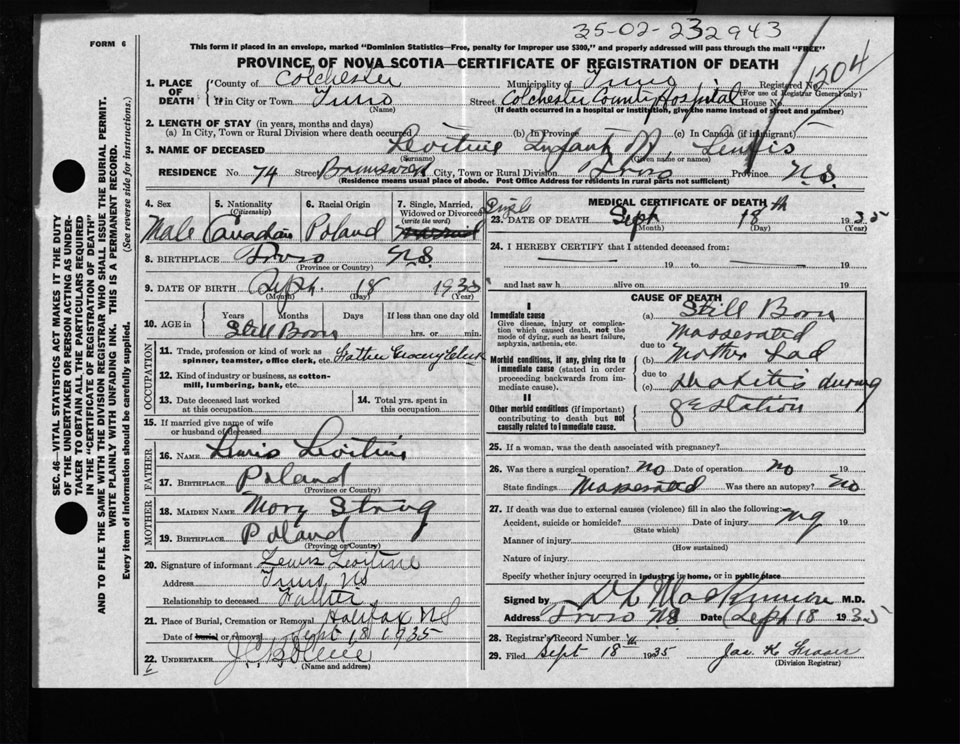 35-02-232943
FORM 6
This form if placed in an envelope, marked "Dominion Statistics—Free, penalty for improper use $300," and properly addressed will pass through the mail "FREE"
PROVINCE OF NOVA SCOTIA—CERTIFICATE OF REGISTRATION OF DEATH
1204
1. PLACE OF DEATH County of Colchester Municipality of Truro Registered No.
(For use of Registrar General only)
If in City or Town Truro (Name) Street Colchester County Hospital House No.
(If death occurred in a hospital or institution, give the name instead of street and number)
2. LENGTH OF STAY (in years, months and days)
(a) In City, Town or Rural Division where death occurred (b) In Province (c) In Canada (if immigrant)
3. NAME OF DECEASED Levitine Infant
(Surname) (Given name or names)
RESIDENCE No. 74 Street Brunswick City, Town or Rural Division Truro Province N.S.
(Residence means usual place of abode. Post Office Address for residents in rural parts not sufficient)
4. Sex 5. Nationality (Citizenship) 6. Racial Origin 7. Single, Married, Widowed or Divorced (write the word)
Male Canadian Poland Single
8. BIRTHPLACE Truro N.S.
(Province or Country)
9. DATE OF BIRTH Sept. 18 1935
(Month) (Day) (Year)
10. AGE in Years Months Days If less than one day old
Still Born hrs. or min.
OCCUPATION
11. Trade, profession or kind of work as spinner, teamster, office clerk, etc. Father Grocery Clerk
12. Kind of industry or business, as cotton-mill, lumbering, bank, etc.
13. Date deceased last worked at this occupation
14. Total yrs. spent in this occupation
15. If married give name of wife or husband of deceased
FATHER
16. Name Lewis Levitine
17. BIRTHPLACE Poland
(Province or Country)
MOTHER
18. MAIDEN NAME Mary
19. BIRTHPLACE Poland
(Province or Country)
20. Signature of informant Lewis Levitine
Address Truro NS
Relationship to deceased Father
21. Place of Burial, Cremation or Removal Halifax NS
Date of burial or removal Sept 18 1935
22. UNDERTAKER
(Name and address)
MEDICAL CERTIFICATE OF DEATH
23. DATE OF DEATH Sept 18th 1935
(Month) (Day) (Year)
24. I HEREBY CERTIFY that I attended deceased from:
19 to 19
and last saw h alive on 19
CAUSE OF DEATH
I
Immediate cause
Give disease, injury or complication which caused death, not the mode of dying, such as heart failure, asphyxia, asthenia, etc.
(a) Still Born
Masserated
due to
Morbid conditions, if any, giving rise to immediate cause (stated in order proceeding backwards from immediate cause).
(b) Mother had
due to
(c) during
gestation
II
Other morbid conditions (if important) contributing to death but not causally related to immediate cause.
25. If a woman, was the death associated with pregnancy?
26. Was there a surgical operation? No Date of operation no 19
State findings Masserated Was there an autopsy? No
27. If death was due to external causes (violence) fill in also the following:
Accident, suicide or homicide? Date of injury 19
(State which)
Manner of injury
(How sustained)
Nature of injury
Specify whether injury occurred in industry, in home, or in public place
Signed by M.D.
Address Truro NS Date Sept 18 1935
28. Registrar's Record Number
29. Filed Sept 18 1935 Jas. K Fraser
(Division Registrar)
SEC. 46—VITAL STATISTICS ACT MAKES IT THE DUTY
OF THE UNDERTAKER OR PERSON ACTING AS UNDER-
TAKER TO OBTAIN ALL THE PARTICULARS REQUIRED
IN THE "CERTIFICATE OF REGISTRATION OF DEATH"
AND TO FILE THE SAME WITH THE DIVISION REGISTRAR WHO SHALL ISSUE THE BURIAL PERMIT.
WRITE PLAINLY WITH UNFADING INK. THIS IS A PERMANENT RECORD.
Every item of information should be carefully supplied. (See reverse side for instructions.)